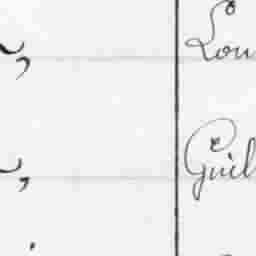 Lou
Guil